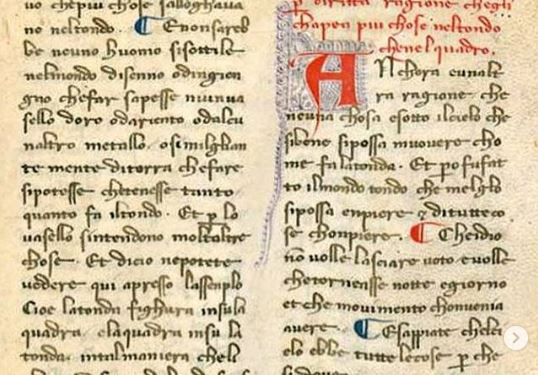 uo che piu chose jalloghaua
no nel tondo. E non sareb
be neuno huomo si sottile
nel mondo di senno o dingien
gno che far sapesse niuna
sello doro o dariento o dalcu
naltro metallo. o similglian
te mente di terra che fare
si potesse che tenesse tanto
quanto fa il tondo. Et p lo
uasello sintendono molte altre
chose. Et di cio ne potete
uedere qui apresso lassenplo
Cioe la tonda fighura in sula
quadra. e la quadra in su la
tonda. in tal maniera chel
p diritta ragione che gli
chapen piu chose nel tondo
che ne l quadro.
Anchora e un alt
ra ragione che
neuna chosa e sotto il cielo che
si bene si possa muouere cho
me fa la tonda. Et po fu fat
to il mondo tondo che melglo
si possa enpiere 7 di tutte co
se chonpiere. Che idio
no uolle lasciare uoto e uolle
che tornensse notte e giorno
et che mouimento chonuenia
auere. E sappiate chel ci
elo ebbe tutte le cose p che